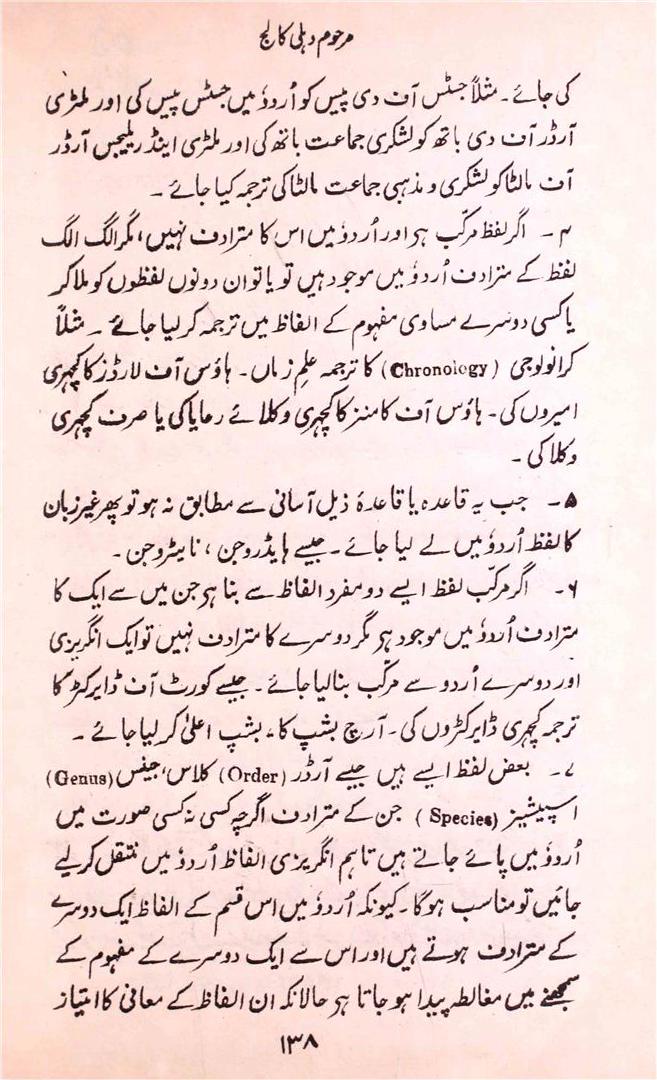 مرحوم دہلی کالج
کی جائے۔ مثلاً جسٹس آف دی پیس کو اُردوٗ میں جسٹس پیس کی اور ملٹری
آرڈر آف دی باتھ کو لشکری جماعت باتھ کی اور ملٹری اینڈ ریلیجس آرڈر
آف مالٹا کو لشکری و مذہبی جماعت مالٹا کی ترجمہ کیا جائے۔
۴۔ اگر لفظ مرکّب ہر اور اُردوٗ میں اس کا مترادف نہیں، مگر الگ الگ
لفظ کے مترادف اُردوٗ میں موجود ہیں تو یا تو ان دونوں لفظوں کو ملا کر
یا کسی دوسرے مساوی مفہوم کے الفاظ میں ترجمہ کر لیا جائے۔ مثلاً
کرانولوجی (Chronology) کا ترجمہ علمِ زماں۔ ہاؤس آف لارڈز کا کچہری
امیروں کی۔ ہاؤس آف کامنز کا کچہری وکلائے رعایا کی یا صرف کچہری
وکلا کی۔
۵۔ جب یہ قاعدہ یا قاعدۂ ذیل آسانی سے مطابق نہ ہو تو پھر غیر زبان
کا لفظ اُردوٗ میں لے لیا جائے۔ جیسے ہایڈروجن، نایٹروجن۔
۶۔ اگر مرکّب لفظ ایسے دو مفرد الفاظ سے بنا ہر جن میں سے ایک کا
مترادف اُردوٗ میں موجود ہر مگر دوسرے کا مترادف نہیں تو ایک انگریزی
اور دوسرے اُردو سے مرکّب بنا لیا جائے۔ جیسے کورٹ آف ڈایرکٹرز کا
ترجمہ کچہری ڈایرکٹروں کی۔ آرچ بشپ کا، بشپ اعلیٰ کر لیا جائے۔
۷۔ بعض لفظ ایسے ہیں جیسے آرڈر (Order) کلاس، جینس (Genus)
اسپیشیز (Species) جن کے مترادف اگرچہ کسی نہ کسی صورت میں
اُردوٗ میں پائے جاتے ہیں تاہم انگریزی الفاظ اُردوٗ میں منتقل کر لیے
جائیں تو مناسب ہوگا۔ کیونکہ اُردوٗ میں اس قسم کے الفاظ ایک دوسرے
کے مترادف ہوتے ہیں اور اس سے ایک دوسرے کے مفہوم کے
سمجھنے میں مغالطہ پیدا ہو جاتا ہر حالانکہ ان الفاظ کے معانی کا امتیاز
۱۳۸